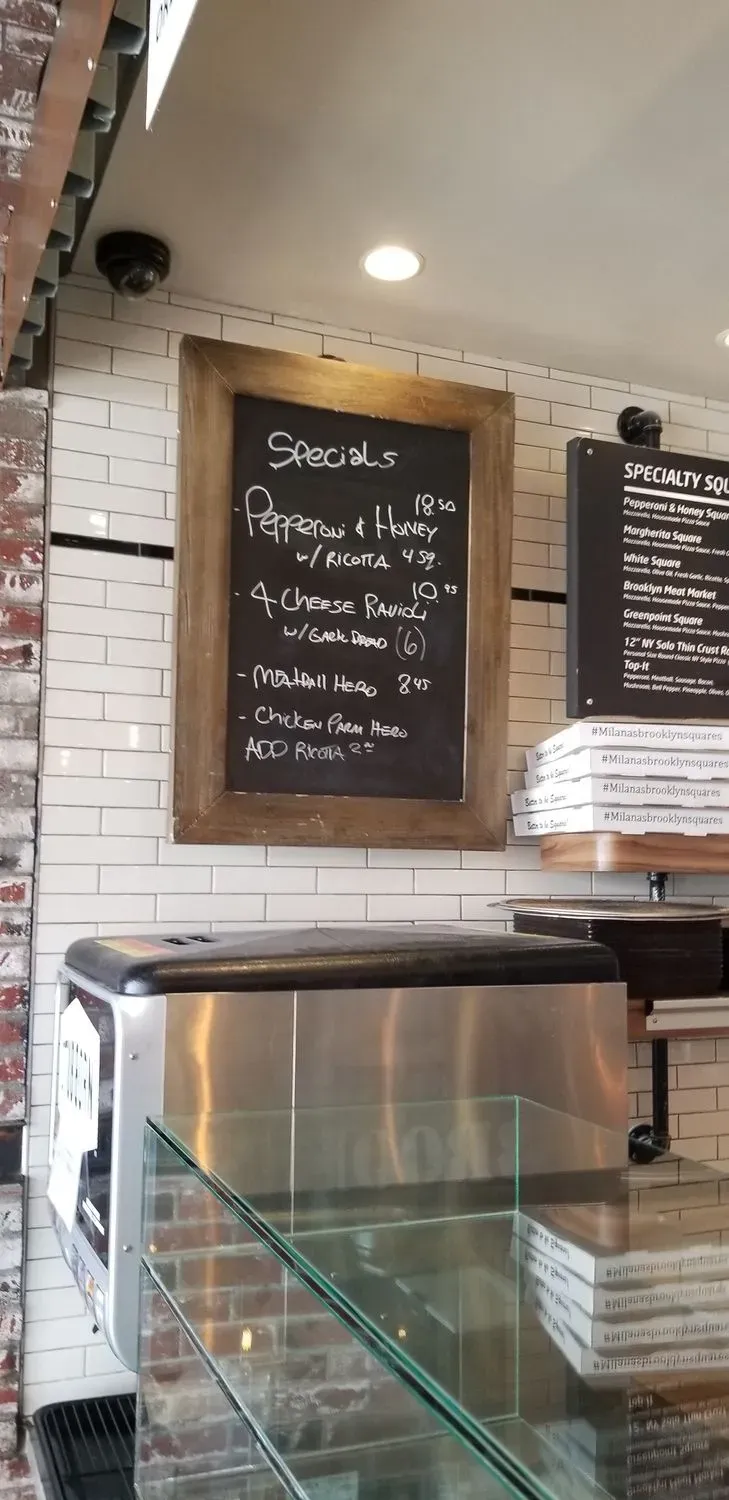 Specials
18.50
- Pepperoni & Honey
w/ Ricotta 4 sq.
10.95
- 4 Cheese Ravioli
w/ Garlic Bread (6)
- Meatball Hero 8.45
- Chicken Parm Hero
ADD Ricotta 2.00
SPECIALTY SQU
Pepperoni & Honey Squar
Mozzarella, Housemade Pizza Sauce
Margherita Square
Mozzarella, Housemade Pizza Sauce, Fresh
White Square
Mozzarella, Olive Oil, Fresh Garlic, Ricotta,
Brooklyn Meat Market
Mozzarella, Housemade Pizza Sauce,
Greenpoint Square
Mozzarella, Housemade Pizza Sauce,
12" NY Solo Thin Crust Ro
Personal Size Round Classic NY Style Pizza
Top-It
Pepperoni, Meatball, Sausage, Bacon,
Mushroom, Bell Pepper, Pineapple, Olives,
#Milanasbrooklynsquares
#Milanasbrooklynsquares
#Milanasbrooklynsquares
#Milanasbrooklynsquares